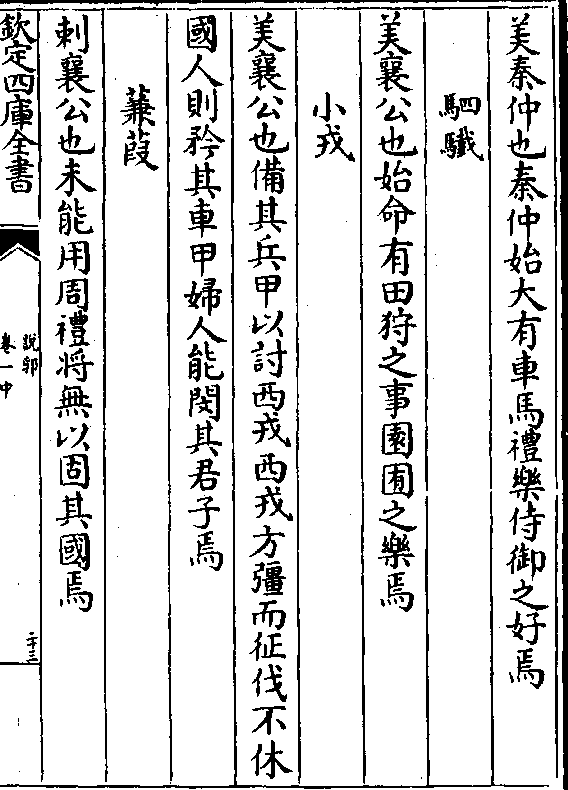 美秦仲也秦仲始大有車馬禮樂侍御之好焉
駟驖
美襄公也始命有田狩之事園囿之樂焉
小戎
美襄公也備其兵甲以討西戎西戎方彊而征伐不休
國人則矜其車甲婦人能閔其君子焉
蒹葭
刺襄公也未能用周禮將無以固其國焉
欽定四庫全書
說郛
卷一中
二十三